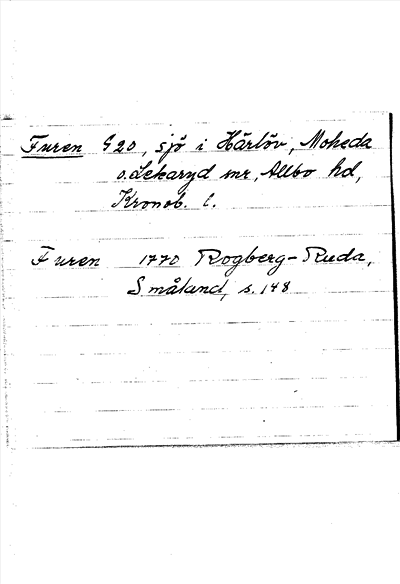 Furen G 20, sjö i Härlöv, Moheda
o. Lekaryd snr, Allbo hd,
Kronob. l.
Furen 1770 Rogberg-Ruda,
Småland, s. 148